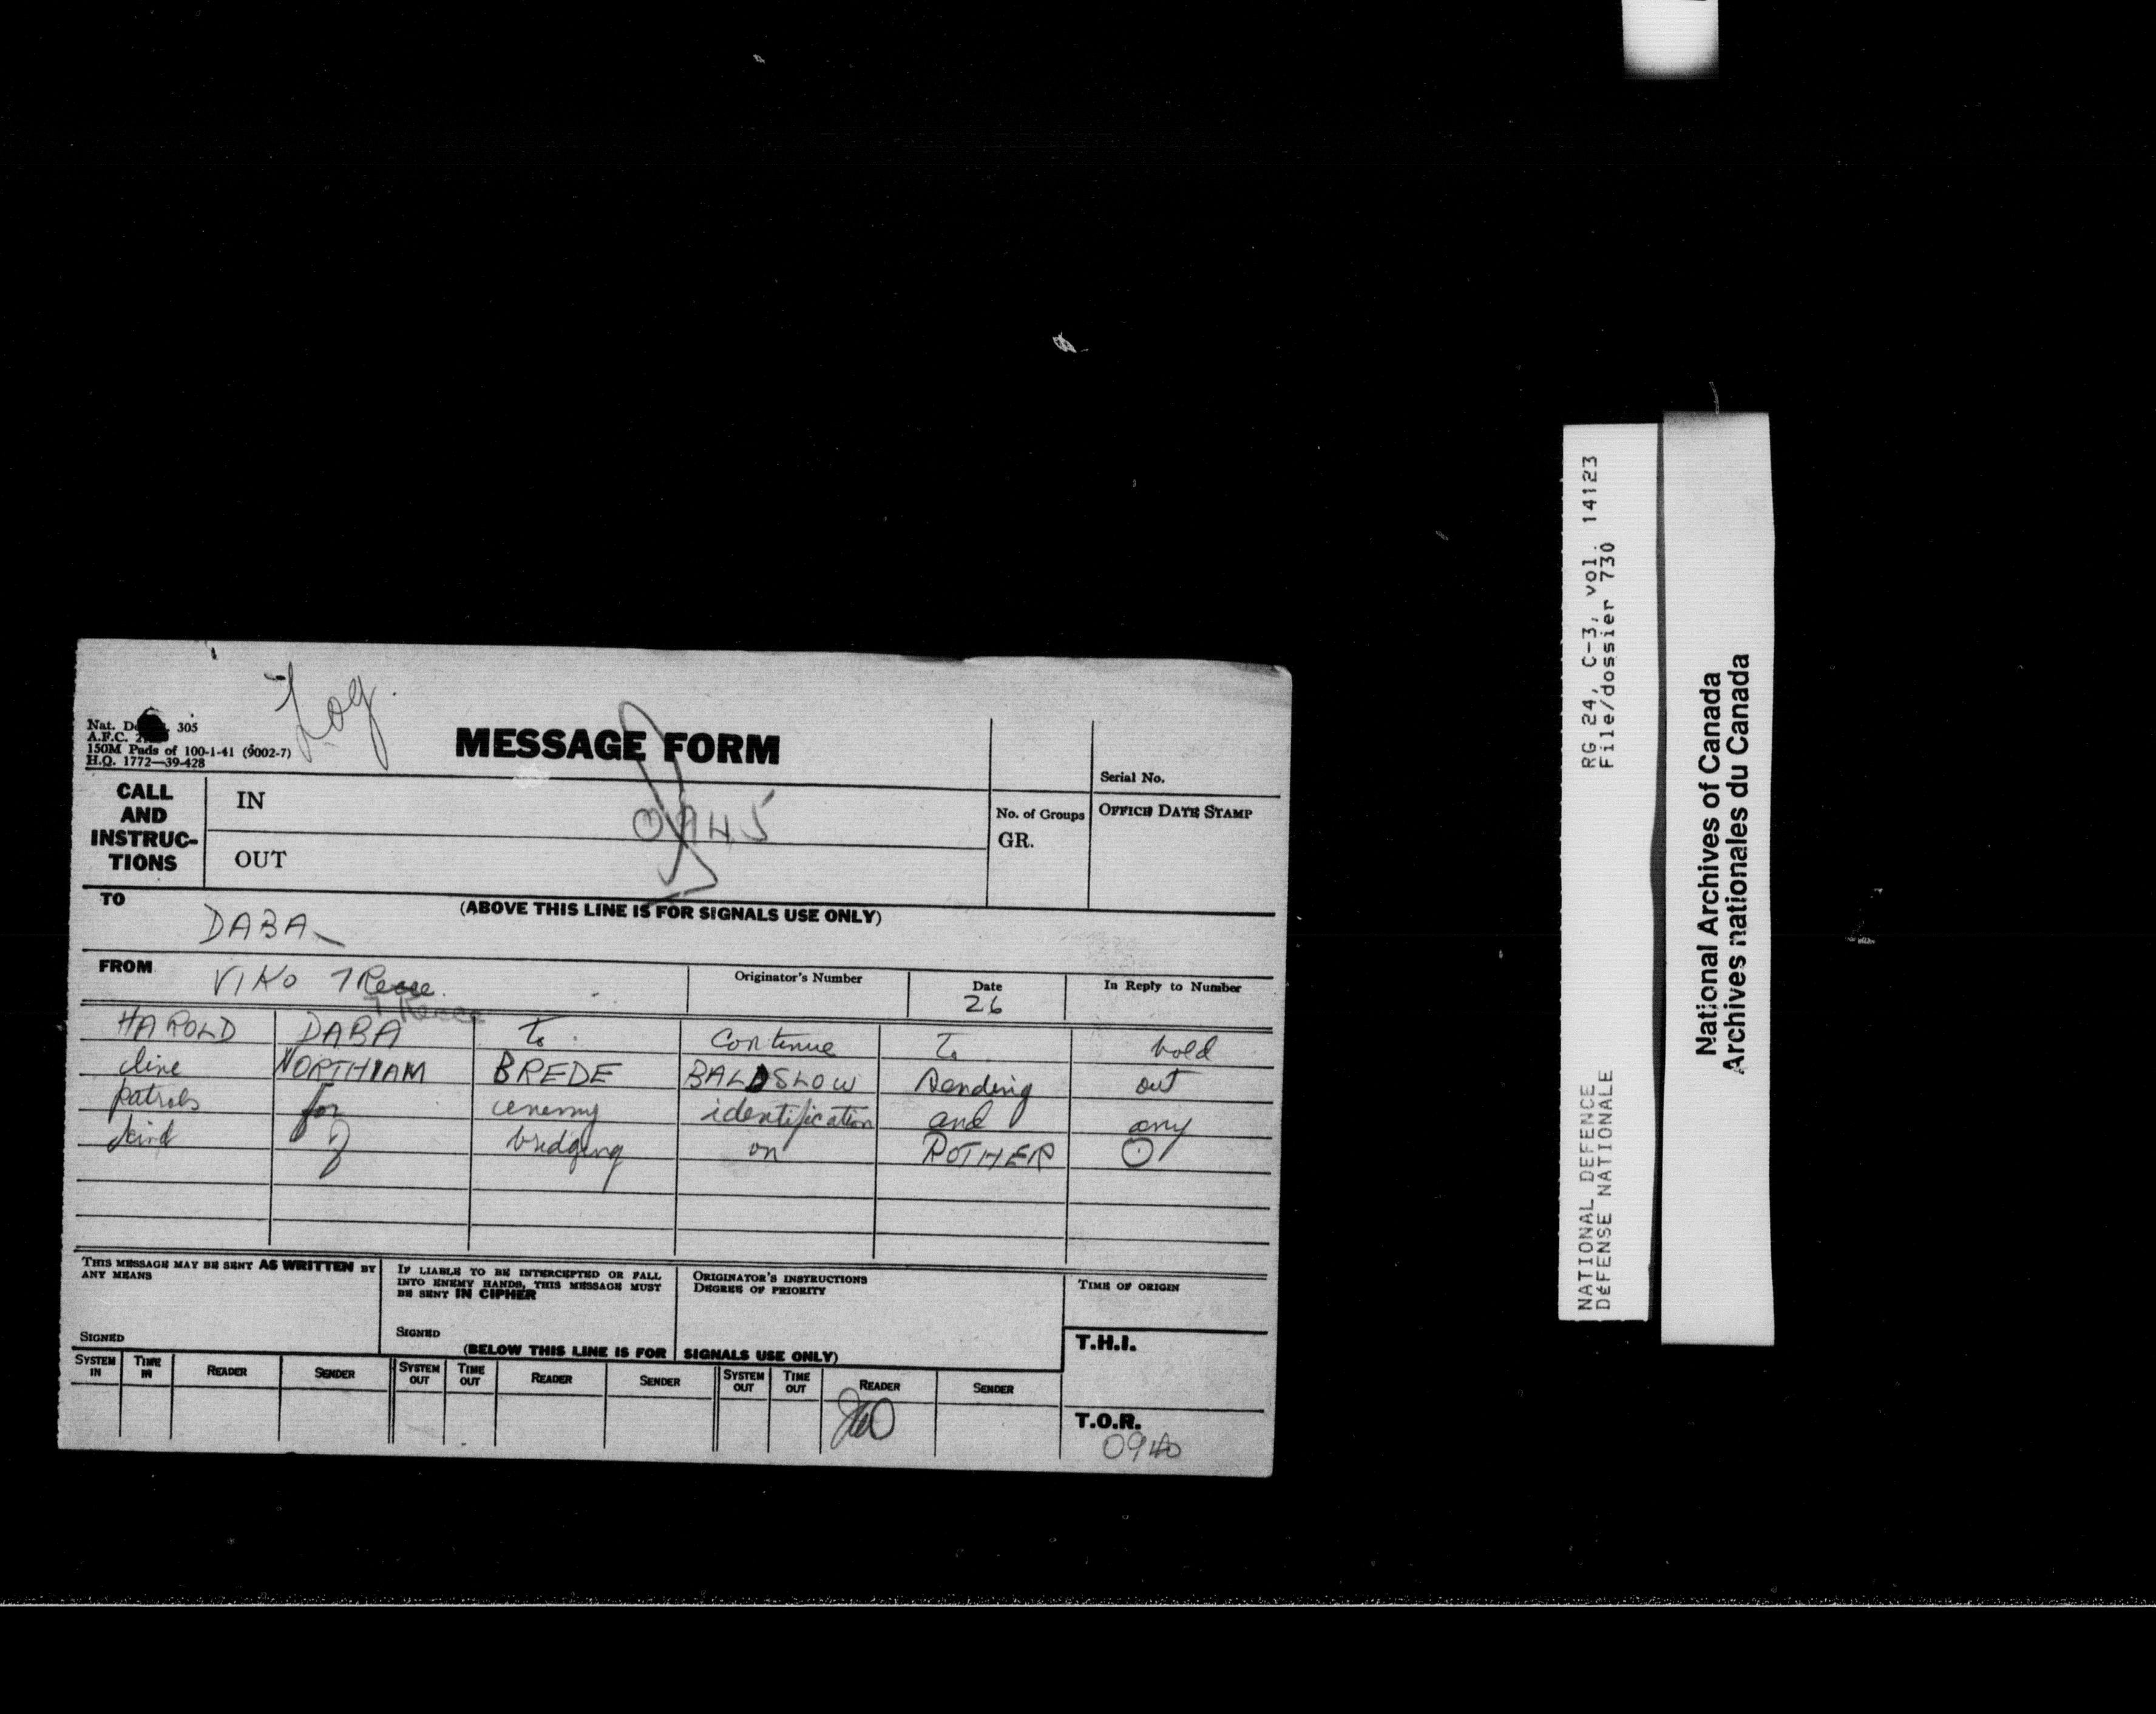 Log.
Nat. De 305
A.F.C.
150M Pads of 100-1-41 (9002-7)
H.Q. 1772—39-428
MESSAGE FORM
Serial No.
CALL AND INSTRUC-TIONS
IN
0945
No. of Groups
GR.
OFFICE DATE STAMP
OUT
TO
(ABOVE THIS LINE IS FOR SIGNALS USE ONLY)
DABA
FROM
VIKO 7 Recce
7 Recce
Originator's Number
Date
26
In Reply to Number
HAROLD DABA To Continue To hold
line NORTHIAM BREDE BALDSLOW sending out
patrols for enemy identification and any
kind of bridging on ROTHER
THIS MESSAGE MAY BE SENT AS WRITTEN BY ANY MEANS
SIGNED
IF LIABLE TO BE INTERCEPTED OR FALL
INTO ENEMY HANDS, THIS MESSAGE MUST
BE SENT IN CIPHER
SIGNED
ORIGINATOR'S INSTRUCTIONS
DEGREE OF PRIORITY
TIME OF ORIGIN
(BELOW THIS LINE IS FOR SIGNALS USE ONLY)
T.H.I.
SYSTEM IN TIME IN READER SENDER SYSTEM OUT TIME OUT READER SENDER SYSTEM OUT TIME OUT READER SENDER
T.O.R.
0940
RG 24, C-3, vol. 14123
File/dossier 730
NATIONAL DEFENCE
DÉFENSE NATIONALE
National Archives of Canada
Archives nationales du Canada